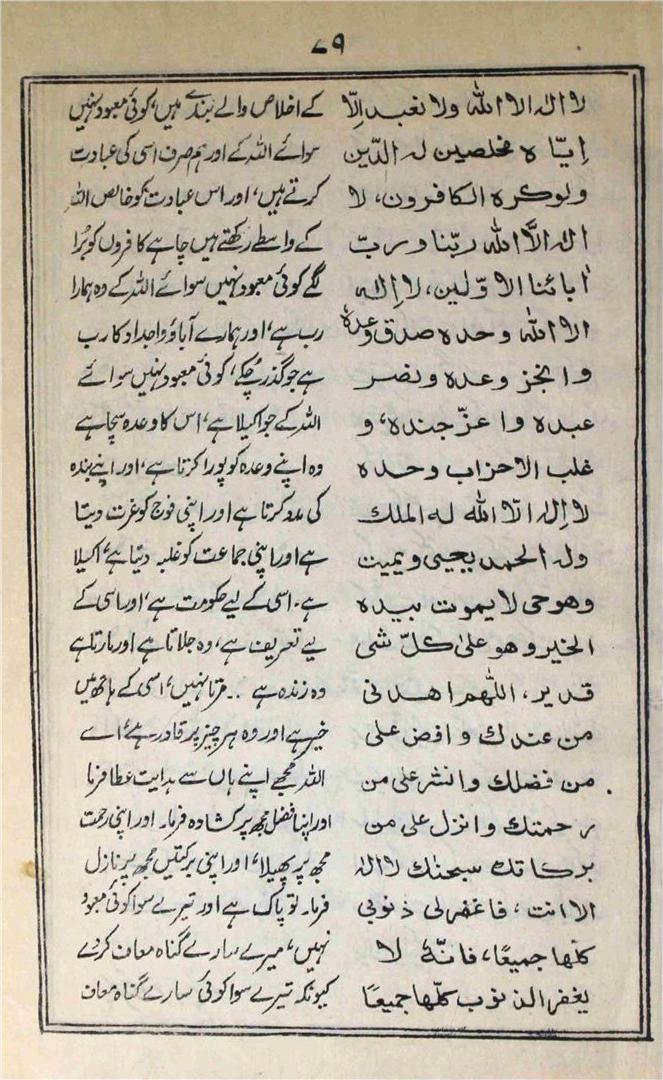 ۷۹
لا اله الا الله ولا نعبد الّا
اِيّا ه مخلصين له الدّين
ولوكره الكافرون، لا
اله الاَّ الله ربّنا و ربّ
اٰبائنا الاوّلين، لا اِله
الا الله وحده صدق وعده
وانجز وعده ونصر
عبده وا عزّ جنده، و
غلب الاحزاب وحده
لا اِله الّا الله له الملك
وله الحمد يحيى ويميت
وهوحى لايموت بيده
الخير وهو علىٰ كلّ شى
قدير، اللّٰهم اهدنى
من عندك وافض على
من فضلك وانشر على من
رحمتك وانزل على من
بركاتك سبحٰنك لا اله
الا انت، فاغفرلى ذنوبى
كلّها جميعًا، فانّهٗ لا
يغفر الذنوب كلّها جميعًا
کے اخلاص والے بندے ہیں، کوئی معبود نہیں
سوائے اللہ کے اور ہم صرف اسی کی عبادت
کرتے ہیں، اور اس عبادت کو خالص اللہ
کے واسطے رکھتے ہیں چاہے کافروں کو بُرا
لگے کوئی معبود نہیں سوائے اللہ کے وہ ہمارا
رب ہے، اور ہمارے آباؤ واجداد کا رب
ہے جو گذر چکے، کوئی معبود نہیں سوائے
اللہ کے جو اکیلا ہے، اس کا وعدہ سچا ہے
وہ اپنے وعدہ کو پورا کرتا ہے، اور اپنے بندہ
کی مدد کرتا ہے اور اپنی فوج کو عزت دیتا
ہے اور اپنی جماعت کو غلبہ دیتا ہے، اکیلا
ہے۔ اسی کے لیے حکومت ہے، اور اسی کے
لیے تعریف ہے، وہ جلاتا ہے اور مارتا ہے
وہ زندہ ہے .. مرتا نہیں، اسی کے ہاتھ میں
خیر ہے اور وہ ہر چیز پر قادر ہے، اے
اللہ مجھے اپنے ہاں سے ہدایت عطا فرما
اور اپنا فضل مجھ پر کشادہ فرما۔ اور اپنی رحمت
مجھ پر پھیلا، اور اپنی برکتیں مجھ پر نازل
فرما۔ تو پاک ہے اور تیرے سوا کوئی معبود
نہیں، میرے سارے گناہ معاف کر دے
کیونکہ تیرے سوا کوئی سارے گناہ معاف